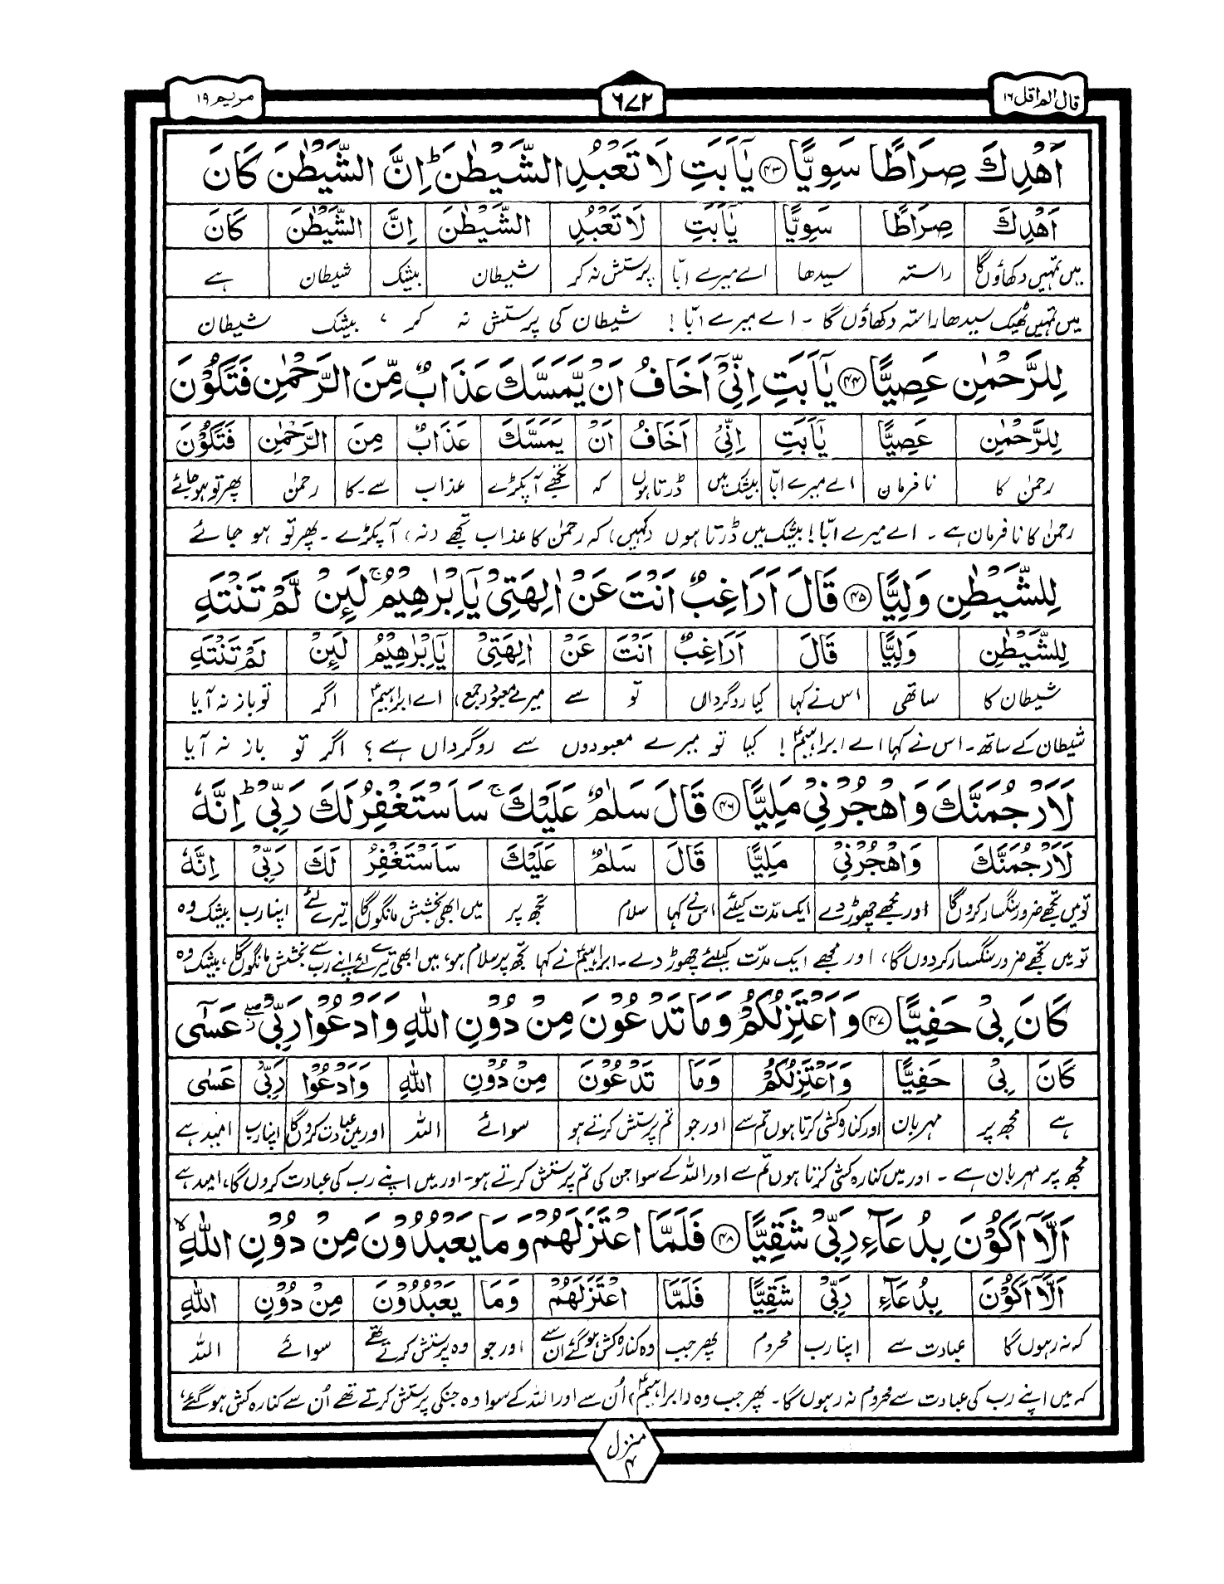 قال الم اقل ١٦
٦٧٢
مريم ١٩
اَهْدِكَ صِرَاطًا سَوِيًّا ﴿۴۳﴾ يٰۤاَبَتِ لَا تَعْبُدِ الشَّيْطٰنَ ؕ اِنَّ الشَّيْطٰنَ كَانَ
اَهْدِكَ صِرَاطًا سَوِيًّا يٰۤاَبَتِ لَا تَعْبُدِ الشَّيْطٰنَ اِنَّ الشَّيْطٰنَ كَانَ
میں تمہیں دکھاؤں گا راستہ سیدھا اے میرے ابّا پرستش نہ کر شیطان بیشک شیطان ہے
میں تمہیں ٹھیک سیدھا راستہ دکھاؤں گا ۔ اے میرے ابّا ! شیطان کی پرستش نہ کر ، بیشک شیطان
لِلرَّحْمٰنِ عَصِيًّا ﴿۴۴﴾ يٰۤاَبَتِ اِنِّيْۤ اَخَافُ اَنْ يَّمَسَّكَ عَذَابٌ مِّنَ الرَّحْمٰنِ فَتَكُوْنَ
لِلرَّحْمٰنِ عَصِيًّا يٰۤاَبَتِ اِنِّيْۤ اَخَافُ اَنْ يَمَسَّكَ عَذَابٌ مِنَ الرَّحْمٰنِ فَتَكُوْنَ
رحمٰن کا نافرمان اے میرے ابّا بیشک میں ڈرتا ہوں کہ تجھے آپکڑے عذاب سے۔کا رحمٰن پھر تو ہو جائے
رحمٰن کا نافرمان ہے ۔ اے میرے ابّا ! بیشک میں ڈرتا ہوں (کہیں) کہ رحمٰن کا عذاب تجھے (نہ) آپکڑے ۔ پھر تو ہو جائے
لِلشَّيْطٰنِ وَلِيًّا ﴿۴۵﴾ قَالَ اَرَاغِبٌ اَنْتَ عَنْ اٰلِهَتِيْ يٰۤاِبْرٰهِيْمُ ۚ لَىِٕنْ لَّمْ تَنْتَهِ
لِلشَّيْطٰنِ وَلِيًّا قَالَ اَرَاغِبٌ اَنْتَ عَنْ اٰلِهَتِيْ يٰۤاِبْرٰهِيْمُ لَىِٕنْ لَمْ تَنْتَهِ
شیطان کا ساتھی اس نے کہا کیا روگرداں تو سے میرے معبود (جمع) اے ابراہیمؑ اگر تو باز نہ آیا
شیطان کے ساتھ۔ اس نے کہا اے ابراہیمؑ ! کیا تو میرے معبودوں سے روگرداں ہے ؟ اگر تو باز نہ آیا
لَاَرْجُمَنَّكَ وَاهْجُرْنِيْ مَلِيًّا ﴿۴۶﴾ قَالَ سَلٰمٌ عَلَيْكَ ۚ سَاَسْتَغْفِرُ لَكَ رَبِّيْ ؕ اِنَّهٗ
لَاَرْجُمَنَّكَ وَاهْجُرْنِيْ مَلِيًّا قَالَ سَلٰمٌ عَلَيْكَ سَاَسْتَغْفِرُ لَكَ رَبِّيْ اِنَّهٗ
تو میں تجھے ضرور سنگسار کروں گا اور مجھے چھوڑ دے ایک مدت کیلئے اس نے کہا سلام تجھ پر میں ابھی بخشش مانگوں گا تیرے لئے اپنا رب بیشک وہ
تو میں تجھے ضرور سنگسار کردوں گا ، اور مجھے ایک مدّت کیلئے چھوڑ دے ۔ ابراہیمؑ نے کہا تجھ پر سلام ہو ، میں ابھی تیرے لئے اپنے رب سے بخشش مانگوں گا ، بیشک وہ
كَانَ بِيْ حَفِيًّا ﴿۴۷﴾ وَاَعْتَزِلُكُمْ وَمَا تَدْعُوْنَ مِنْ دُوْنِ اللّٰهِ وَاَدْعُوْا رَبِّيْ ۖ عَسٰۤى
كَانَ بِيْ حَفِيًّا وَاَعْتَزِلُكُمْ وَمَا تَدْعُوْنَ مِنْ دُوْنِ اللّٰهِ وَاَدْعُوْا رَبِّيْ عَسٰى
ہے مجھ پر مہربان اور کنارہ کشی کرتا ہوں تم سے اور جو تم پرستش کرتے ہو سوائے اللہ اور میں عبادت کروں گا اپنا رب امید ہے
مجھ پر مہربان ہے ۔ اور میں کنارہ کشی کرتا ہوں تم سے اور اللہ کے سوا جن کی تم پرستش کرتے ہو۔ اور میں اپنے رب کی عبادت کروں گا ، امید ہے
اَلَّاۤ اَكُوْنَ بِدُعَآءِ رَبِّيْ شَقِيًّا ﴿۴۸﴾ فَلَمَّا اعْتَزَلَهُمْ وَمَا يَعْبُدُوْنَ مِنْ دُوْنِ اللّٰهِ ۙ
اَلَّاۤ اَكُوْنَ بِدُعَآءِ رَبِّيْ شَقِيًّا فَلَمَّا اعْتَزَلَهُمْ وَمَا يَعْبُدُوْنَ مِنْ دُوْنِ اللّٰهِ
کہ نہ رہوں گا عبادت سے اپنا رب محروم پھر جب وہ کنارہ کش ہو گئے ان سے اور جو وہ پرستش کرتے تھے سوائے اللہ
کہ میں اپنے رب کی عبادت سے محروم نہ رہوں گا ۔ پھر جب وہ (ابراہیمؑ) اُن سے اور اللہ کے سوا وہ جنکی پرستش کرتے تھے اُن سے کنارہ کش ہو گئے ،
منزل ۴